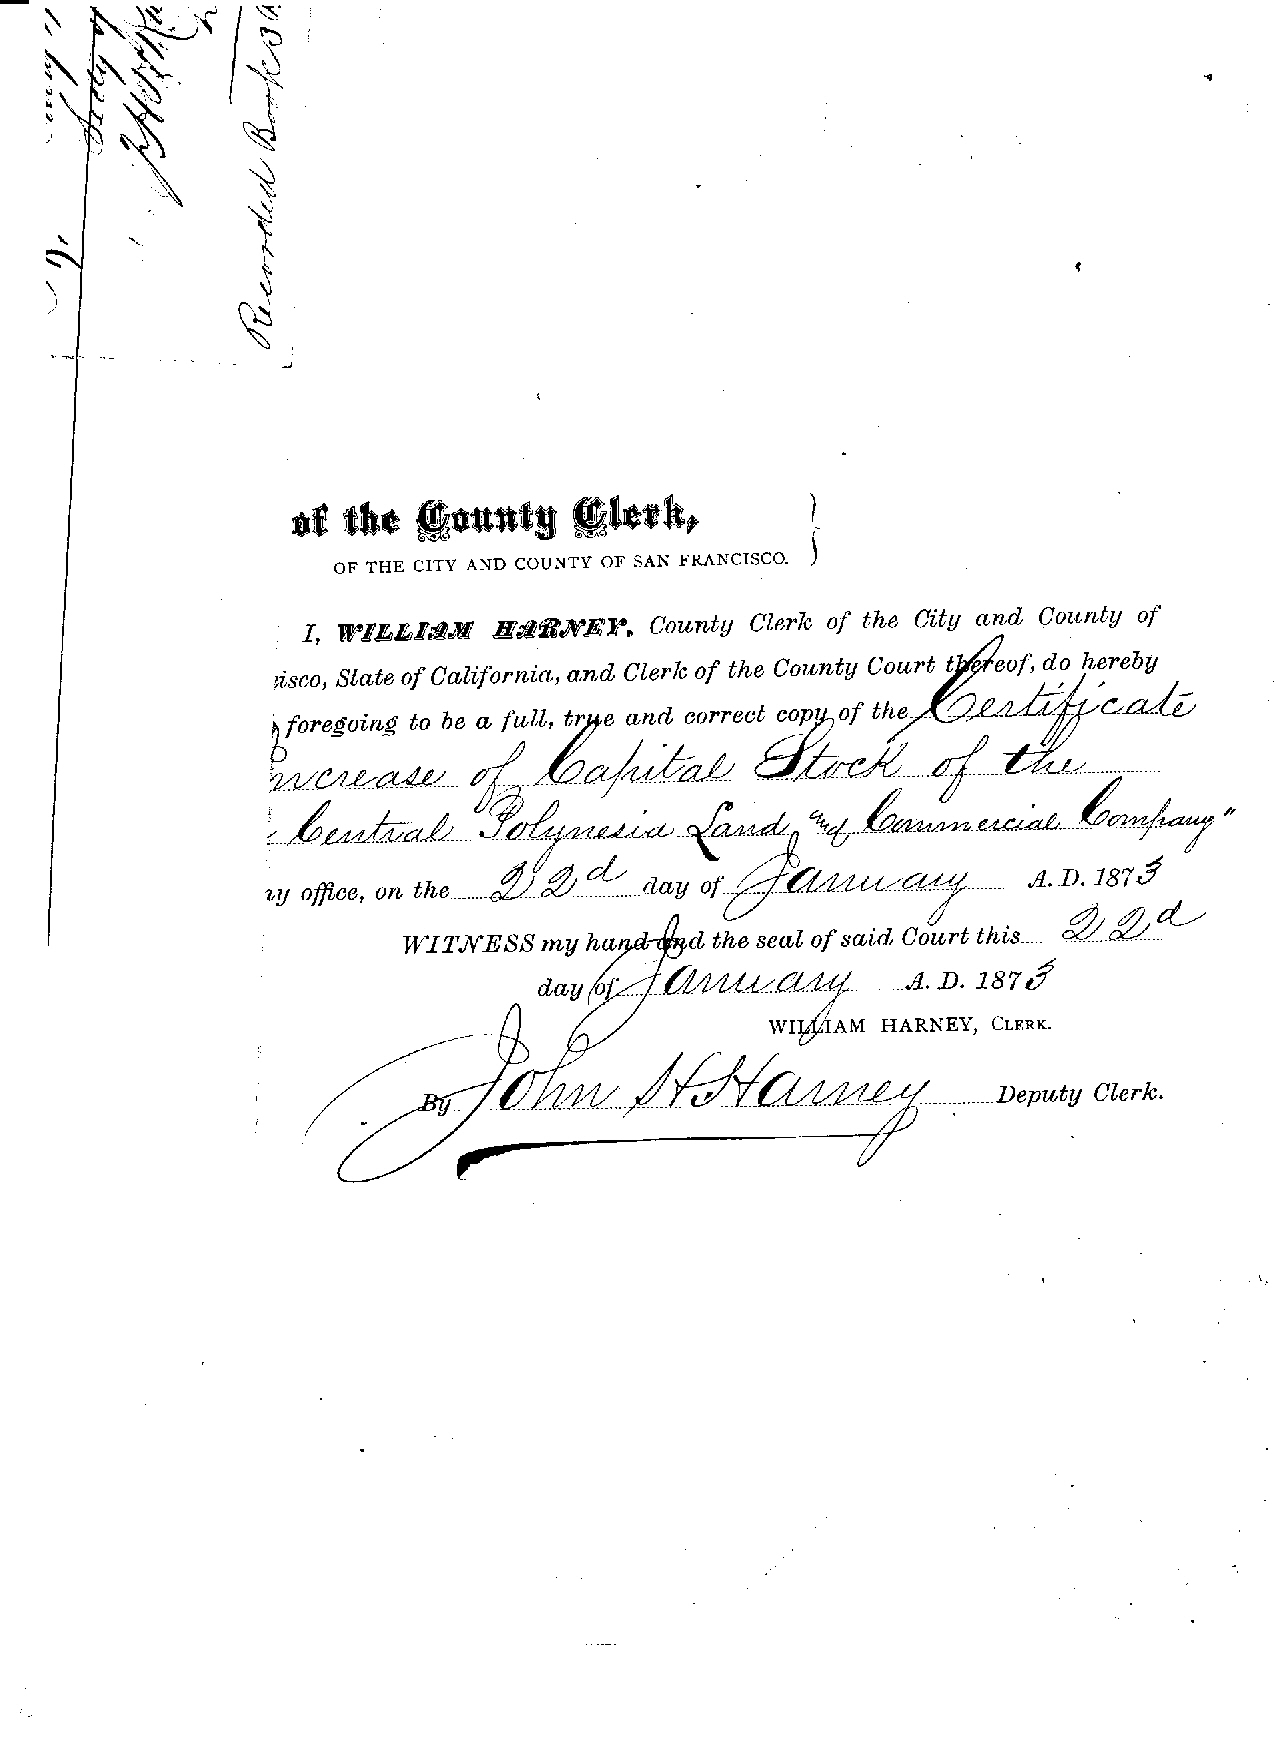 Recorded Book
of the County Clerk,
OF THE CITY AND COUNTY OF SAN FRANCISCO.
I, WILLIAM HARNEY, County Clerk of the City and County of
isco, State of California, and Clerk of the County Court thereof, do hereby
foregoing to be a full, true and correct copy of the Certificate
Increase of Capital Stock of the
Central Polynesia Land and Commercial Company"
y office, on the 22d day of January A. D. 1873
WITNESS my hand and the seal of said Court this 22d
day of January A. D. 1873
WILLIAM HARNEY, CLERK.
By John H Harney Deputy Clerk.